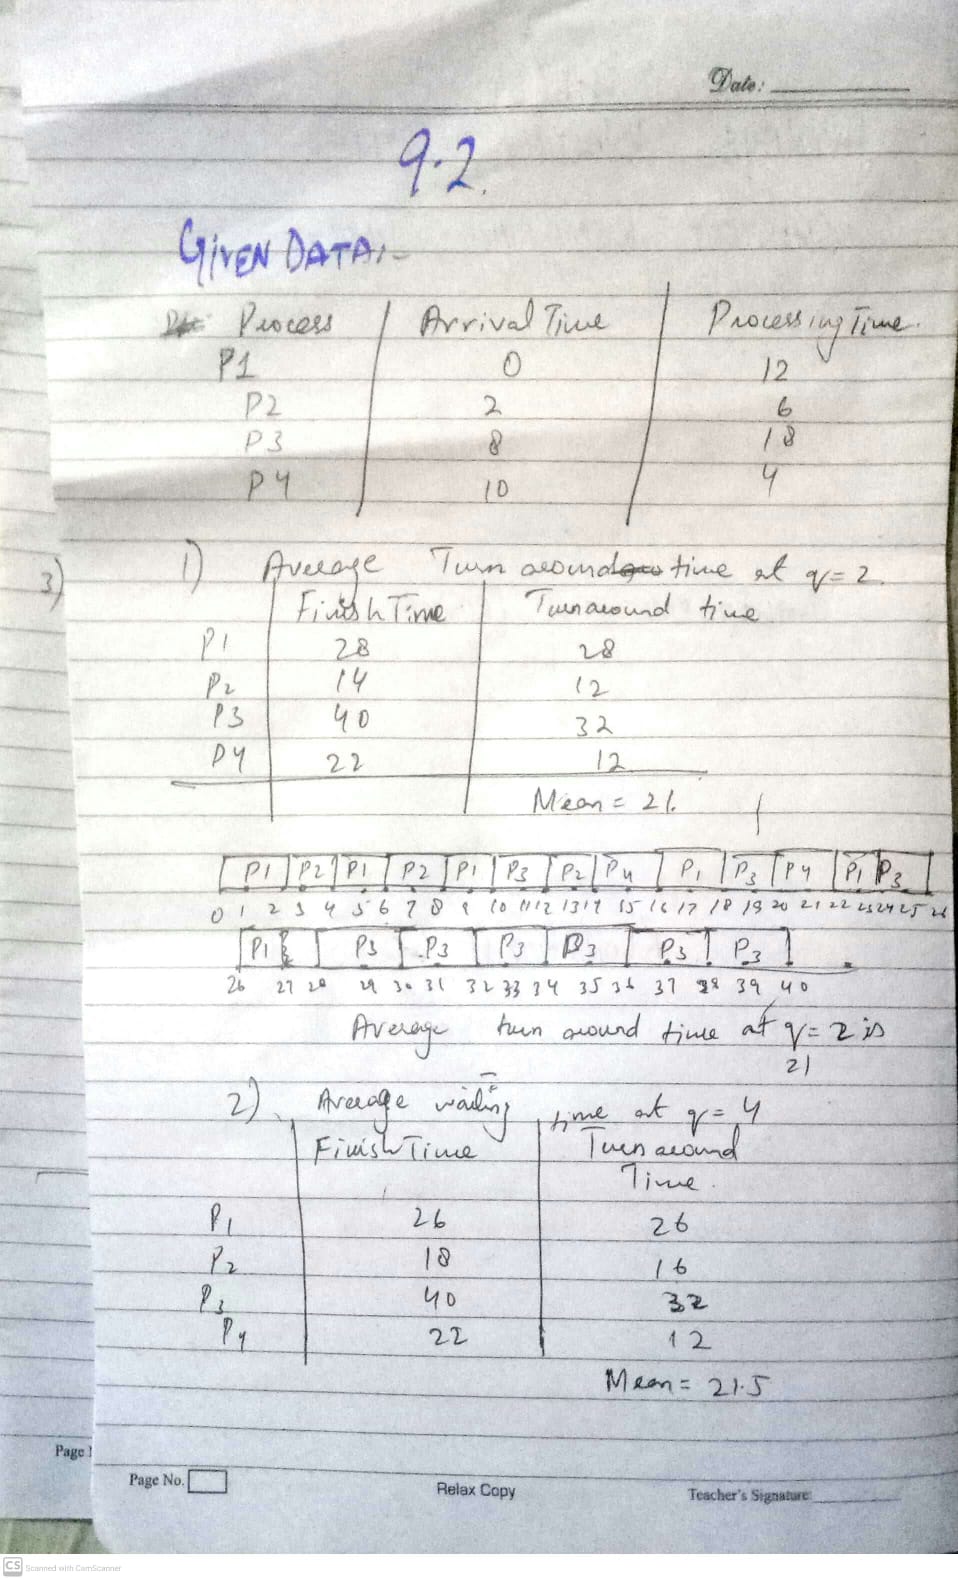 Date:
9.2.
GIVEN DATA:-
Process Arrival Time Processing Time.
P1 0 12
P2 2 6
P3 8 18
P4 10 4
3) 1) Average Turn around time at q=2.
Finish Time Turnaround time
P1 28 28
P2 14 12
P3 40 32
P4 22 12
Mean = 21.
P1 P2 P1 P2 P1 P3 P2 P4 P1 P3 P4 P1 P3
0 1 2 3 4 5 6 7 8 9 10 11 12 13 14 15 16 17 18 19 20 21 22 23 24 25 26
P1 P3 P3 P3 P3 P3 P3
26 27 28 29 30 31 32 33 34 35 36 37 38 39 40
Average turn around time at q=2 is
21
2) Average waiting time at q=4
Finish Time Turn around
Time.
P1 26 26
P2 18 16
P3 40 32
P4 22 12
Mean = 21.5
Page
Page No.
Relax Copy
Teacher's Signature:
CS Scanned with CamScanner